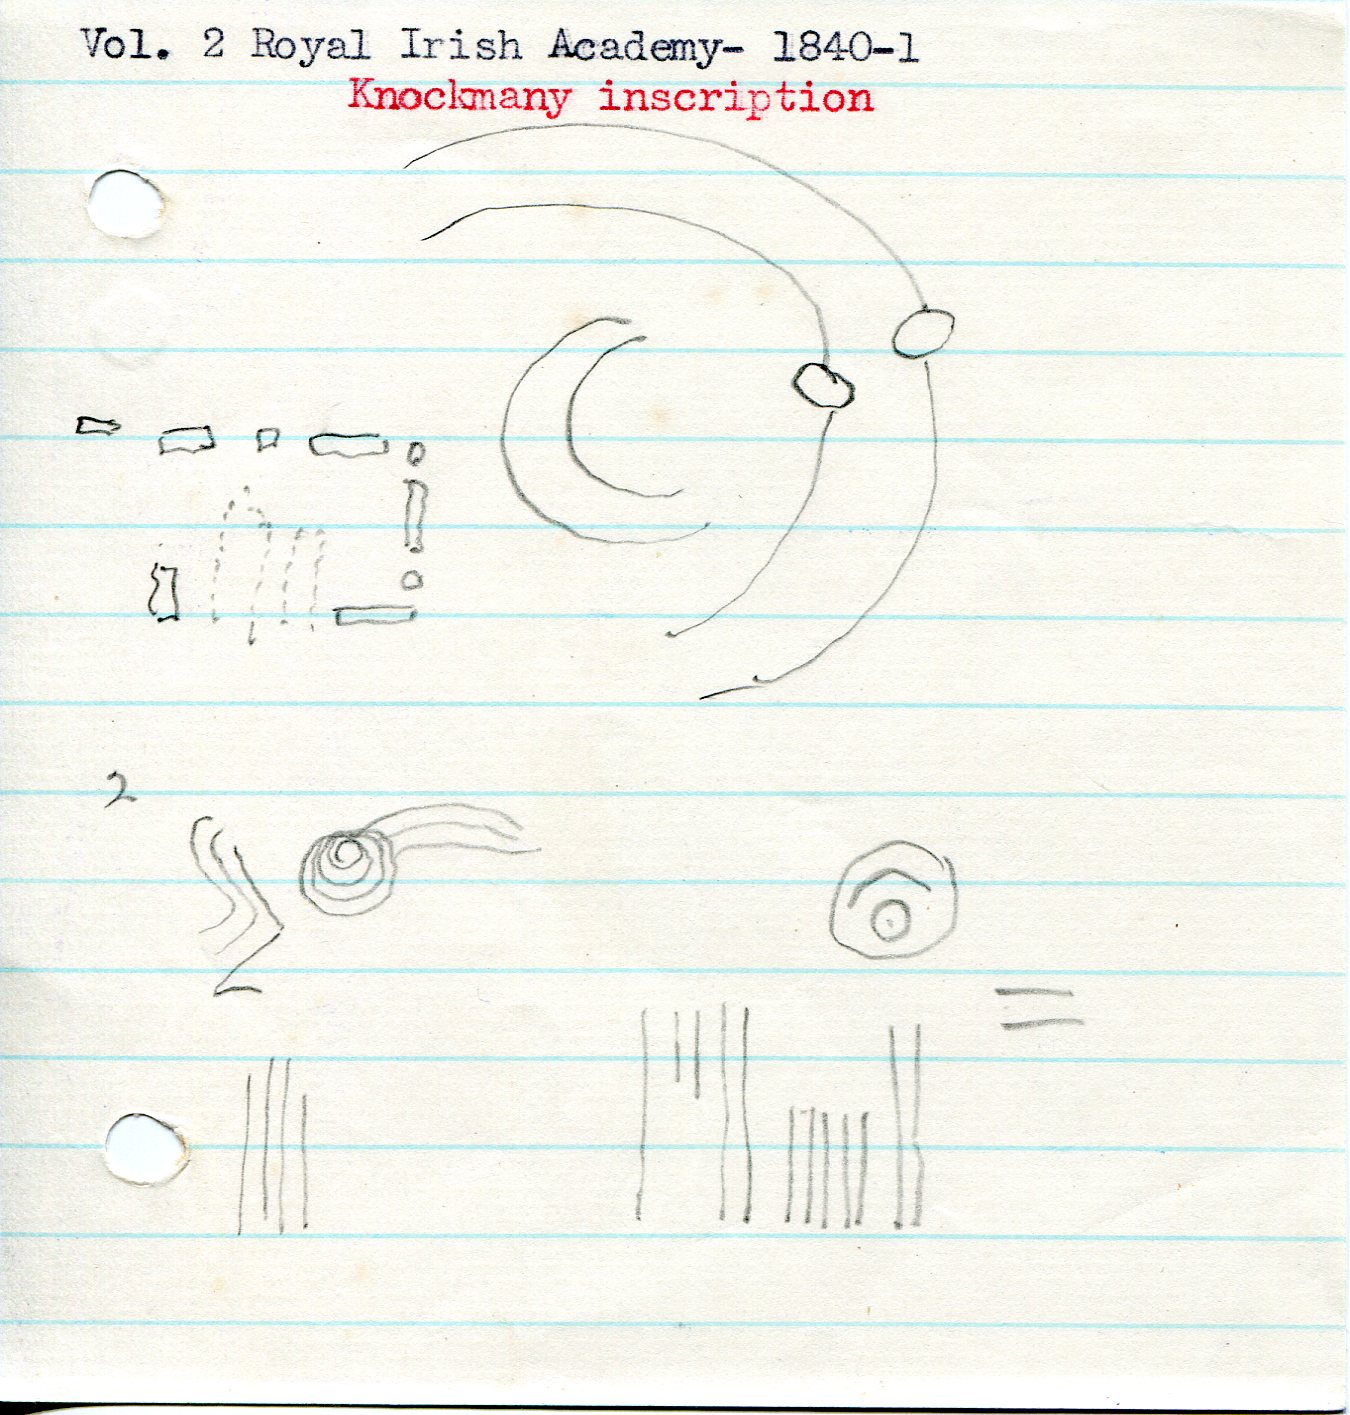 Vol. 2 Royal Irish Academy- 1840-1
Knockmany inscription
2